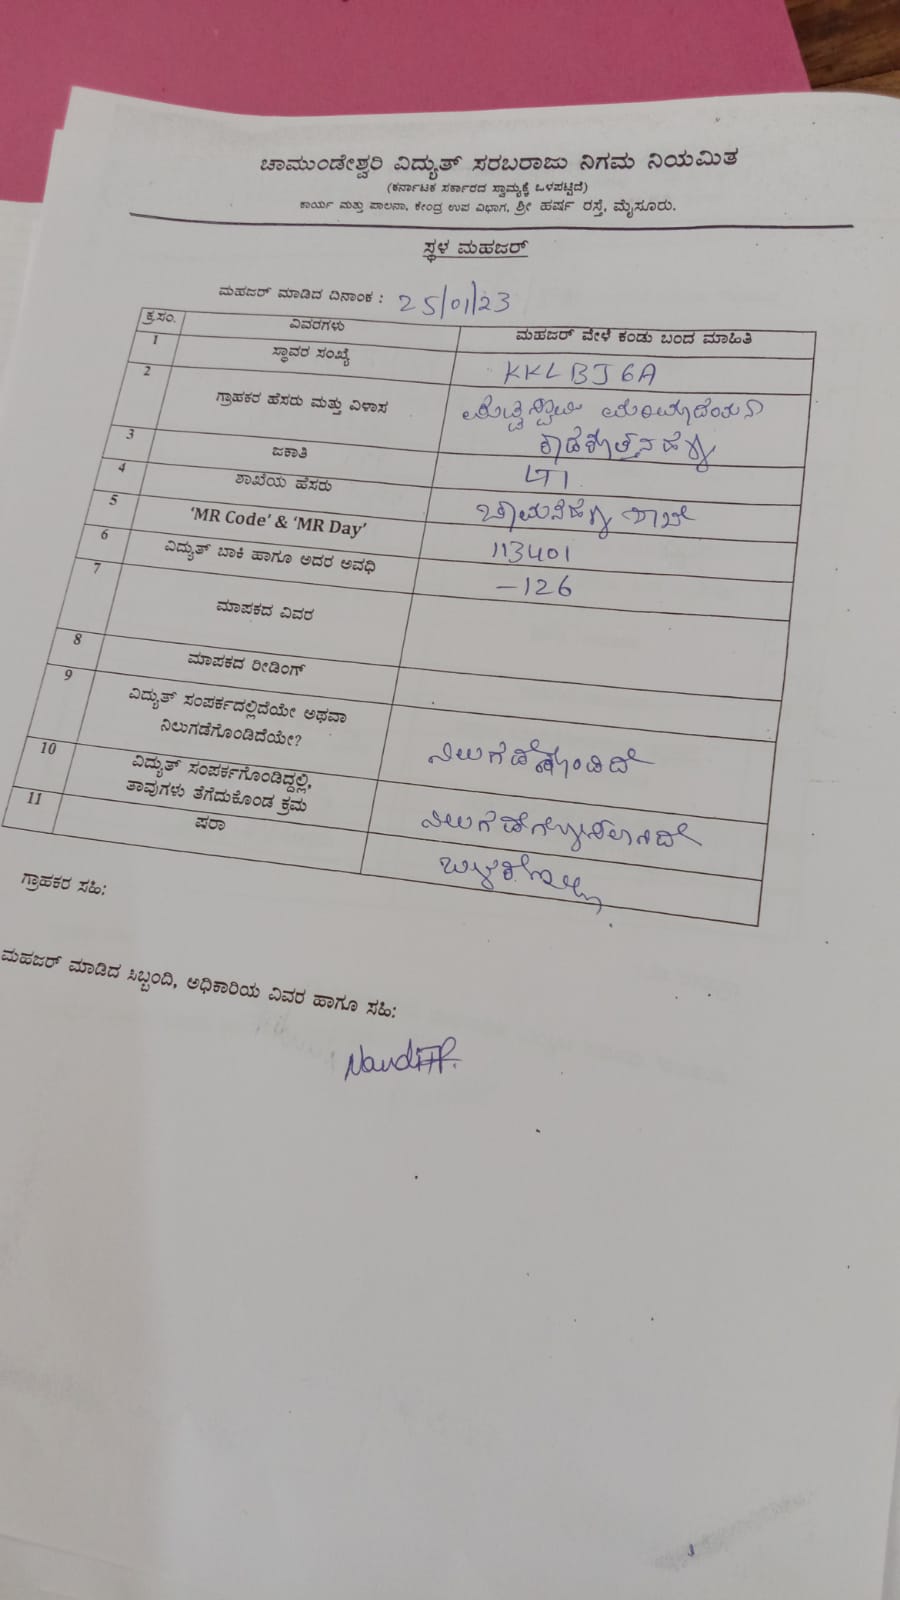 ಚಾಮುಂಡೇಶ್ವರಿ ವಿದ್ಯುತ್ ಸರಬರಾಜು ನಿಗಮ ನಿಯಮಿತ
(ಕರ್ನಾಟಕ ಸರ್ಕಾರದ ಸ್ವಾಮ್ಯಕ್ಕೆ ಒಳಪಟ್ಟಿದೆ)
ಕಾರ್ಯ ಮತ್ತು ಪಾಲನಾ, ಕೇಂದ್ರ ಉಪ ವಿಭಾಗ, ಶ್ರೀ ಹರ್ಷ ರಸ್ತೆ, ಮೈಸೂರು.
ಸ್ಥಳ ಮಹಜರ್
ಮಹಜರ್ ಮಾಡಿದ ದಿನಾಂಕ : 25/01/23
ಕ್ರ.ಸಂ. ವಿವರಗಳು ಮಹಜರ್ ವೇಳೆ ಕಂಡು ಬಂದ ಮಾಹಿತಿ
1 ಸ್ಥಾವರ ಸಂಖ್ಯೆ KKLBJ6A
2 ಗ್ರಾಹಕರ ಹೆಸರು ಮತ್ತು ವಿಳಾಸ
3 ಜಕಾತಿ LT1
4 ಶಾಖೆಯ ಹೆಸರು
5 'MR Code' & 'MR Day' 113401
6 ವಿದ್ಯುತ್ ಬಾಕಿ ಹಾಗೂ ಅದರ ಅವಧಿ -126
7 ಮಾಪಕದ ವಿವರ
8 ಮಾಪಕದ ರೀಡಿಂಗ್
9 ವಿದ್ಯುತ್ ಸಂಪರ್ಕದಲ್ಲಿದೆಯೇ ಅಥವಾ
ನಿಲುಗಡೆಗೊಂಡಿದೆಯೇ?
10 ವಿದ್ಯುತ್ ಸಂಪರ್ಕಗೊಂಡಿದ್ದಲ್ಲಿ,
ತಾವುಗಳು ತೆಗೆದುಕೊಂಡ ಕ್ರಮ
11 ಷರಾ
ಗ್ರಾಹಕರ ಸಹಿ:
ಮಹಜರ್ ಮಾಡಿದ ಸಿಬ್ಬಂದಿ, ಅಧಿಕಾರಿಯ ವಿವರ ಹಾಗೂ ಸಹಿ: